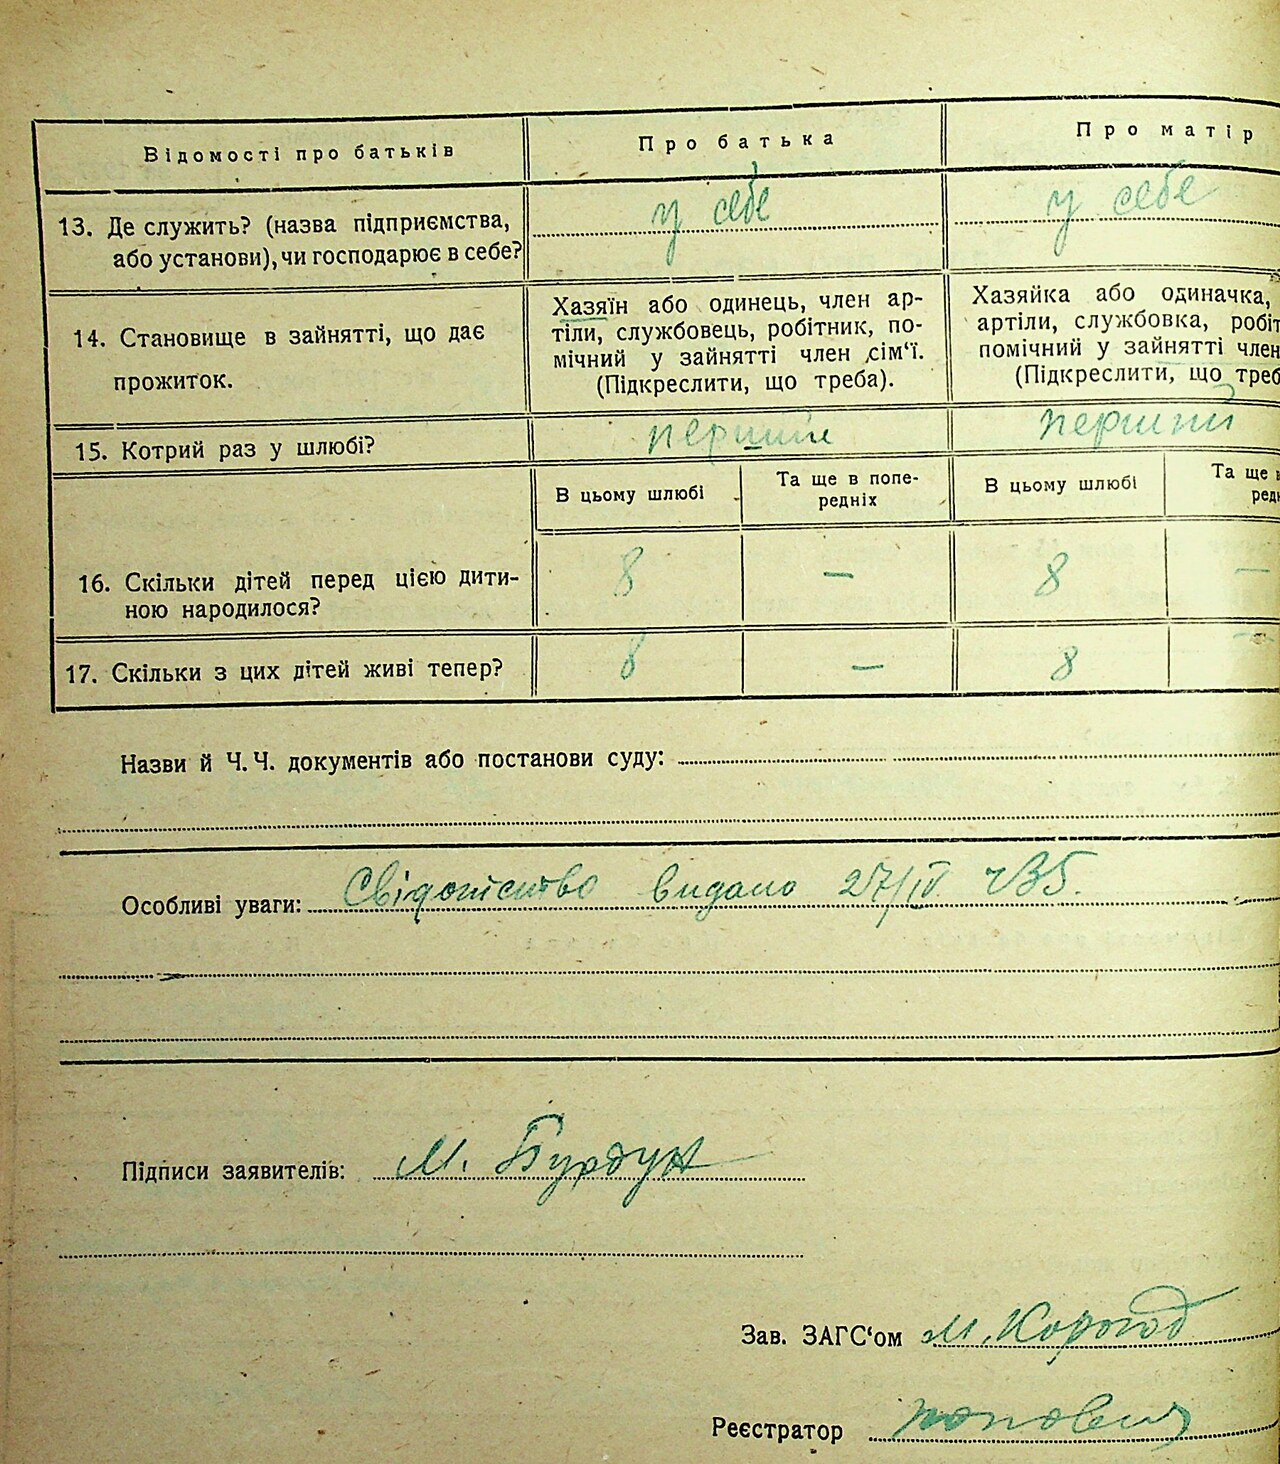 Відомості про батьків
Про батька
Про матір
13. Де служить? (назва підприємства,
або установи), чи господарює в себе?
у себе
у себе
14. Становище в зайнятті, що дає
прожиток.
Хазяїн або одинець, член ар-
тіли, службовець, робітник, по-
мічний у зайнятті член сім‘ї.
(Підкреслити, що треба).
Хазяйка або одиначка,
артіли, службовка, робіт
помічний у зайнятті член
(Підкреслити, що треб
15. Котрий раз у шлюбі?
перший
перший
В цьому шлюбі
Та ще в попе-
редніх
В цьому шлюбі
Та ще в
редн
16. Скільки дітей перед цією дити-
ною народилося?
8
—
8
—
17. Скільки з цих дітей живі тепер?
8
—
8
—
Назви й Ч. Ч. документів або постанови суду:
Особливі уваги: Свідотство видано 27/IV 35.
Підписи заявителів: М. Бурдун
Зав. ЗАГС‘ом М. Корогод
Реєстратор Попович